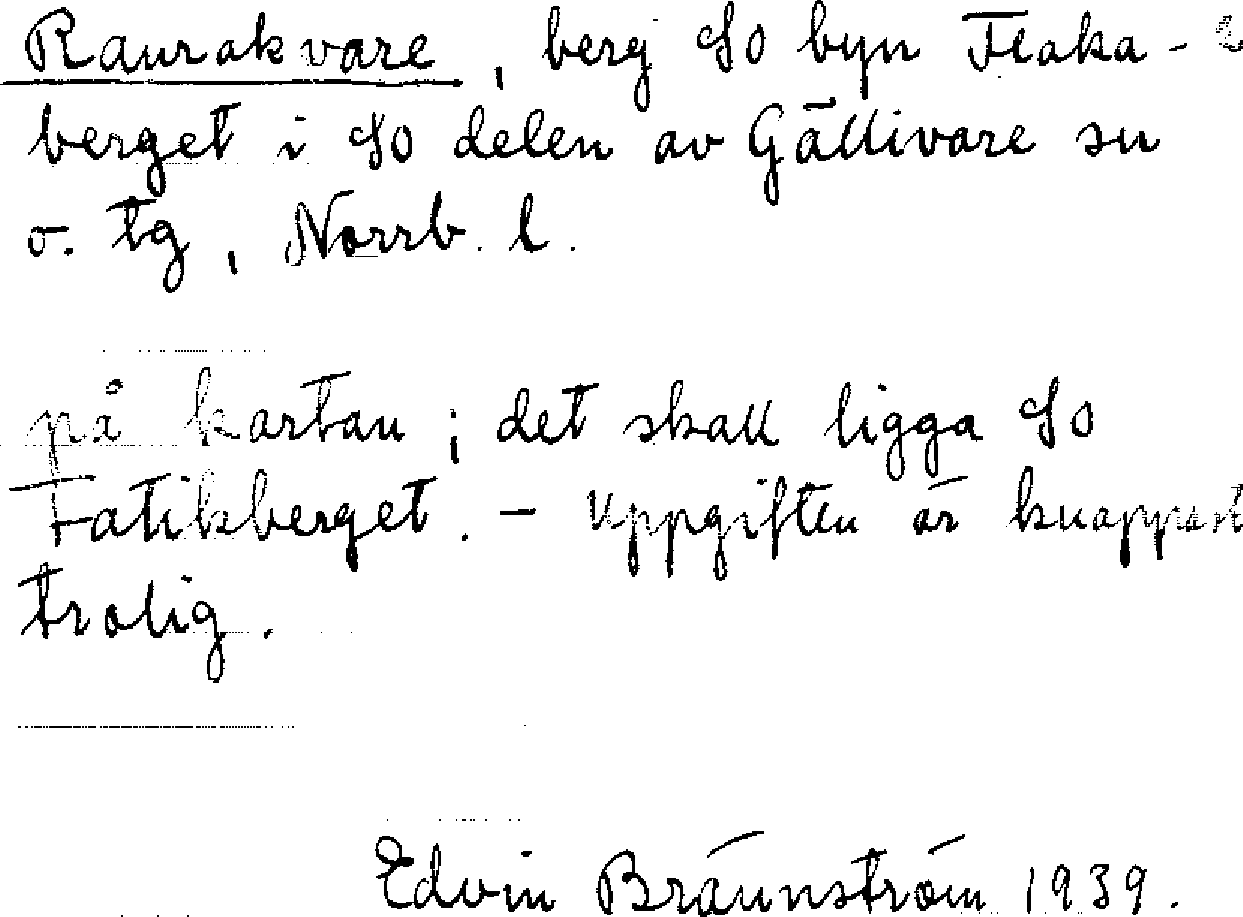 Raurakvare, berg SO byn Flaka-
berget i SO delen av Gällivare sn
o. tg, Norrb. l.
på kartan; det skall ligga SO
Fatikberget. - Uppgiften är knappast
trolig.
Edvin Brännström 1939.